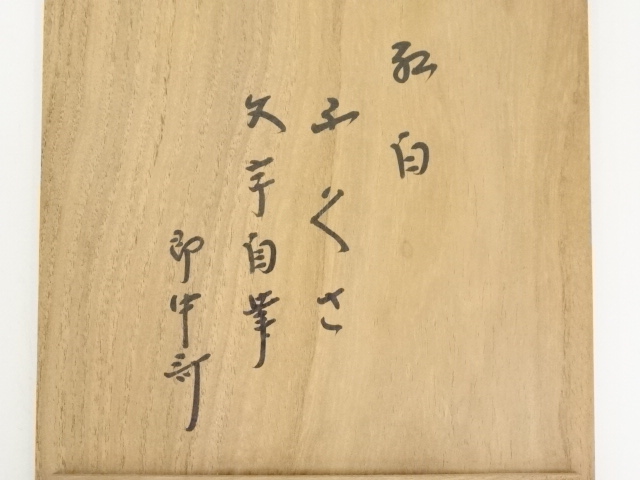 紅白
ふくさ
文字自筆
即中斎